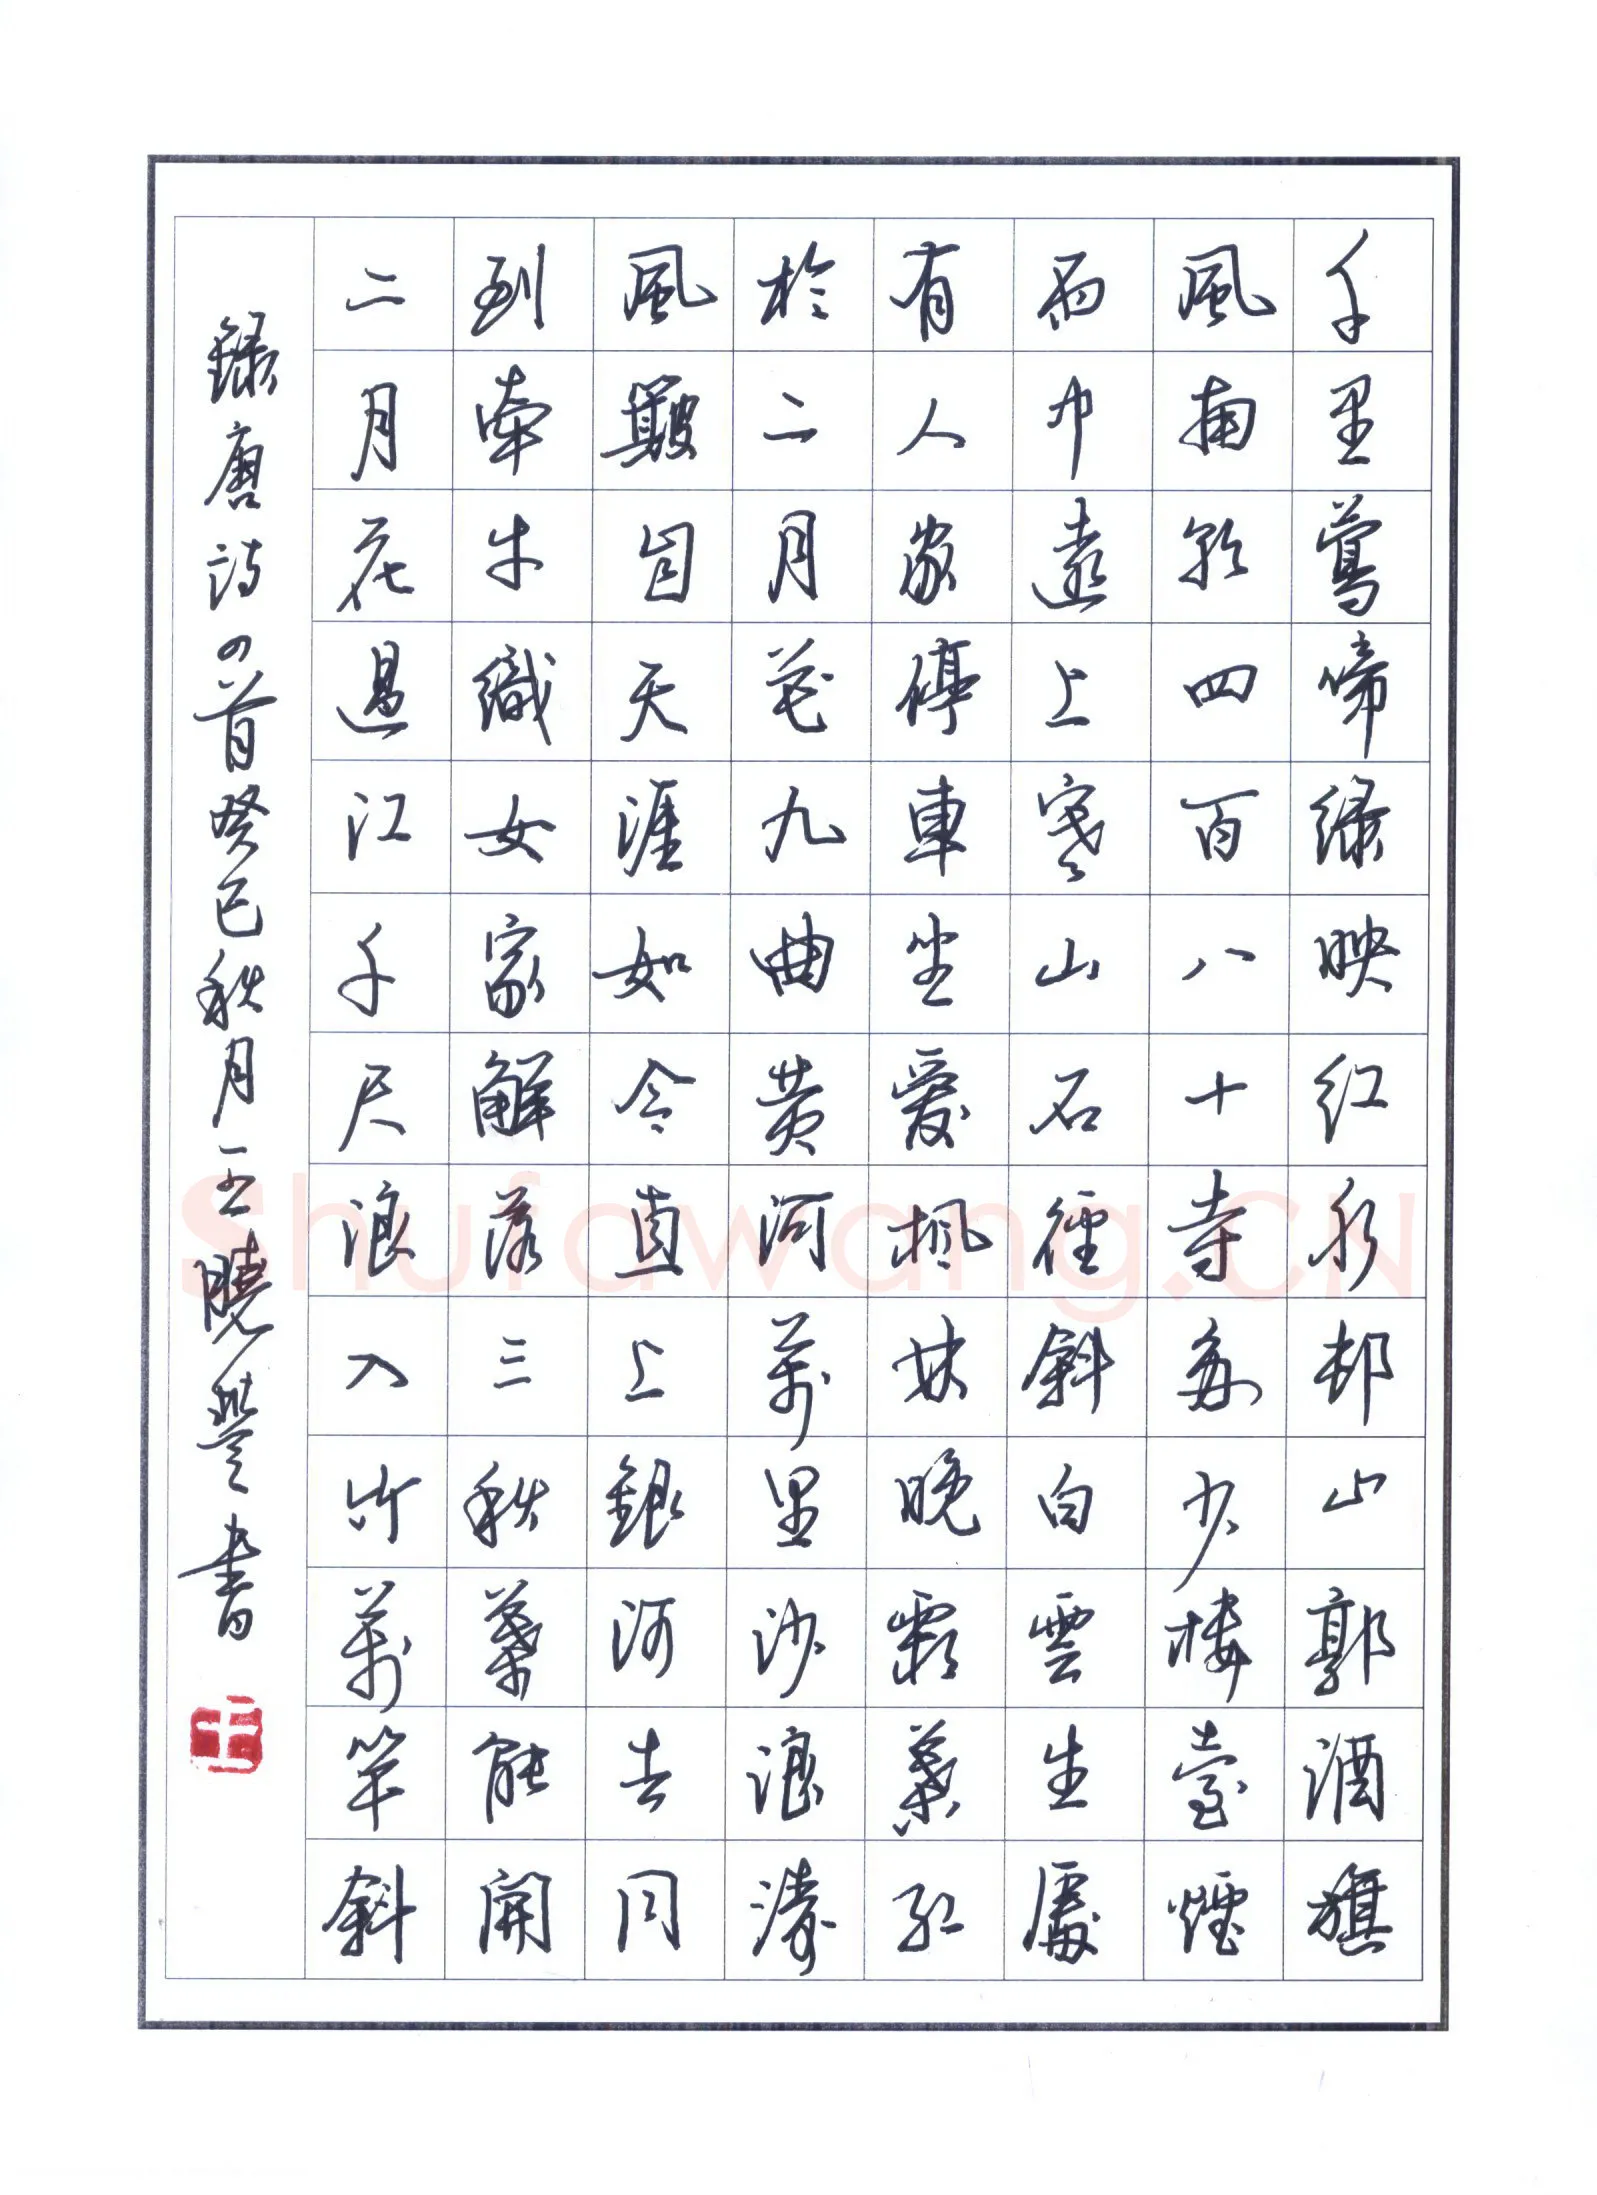 千里鶯啼綠映紅水邨山郭酒旗
風南朝四百八十寺多少樓臺煙
雨中遠上寒山石徑斜白雲生處
有人家停車坐愛楓林晚霜葉紅
於二月花九曲黃河萬里沙浪濤
風簸自天涯如今直上銀河去同
到牽牛織女家解落三秋葉能開
二月花過江千尺浪入竹萬竿斜
錄唐詩四首癸巳秋月王曉書
王
Shufawang.CN